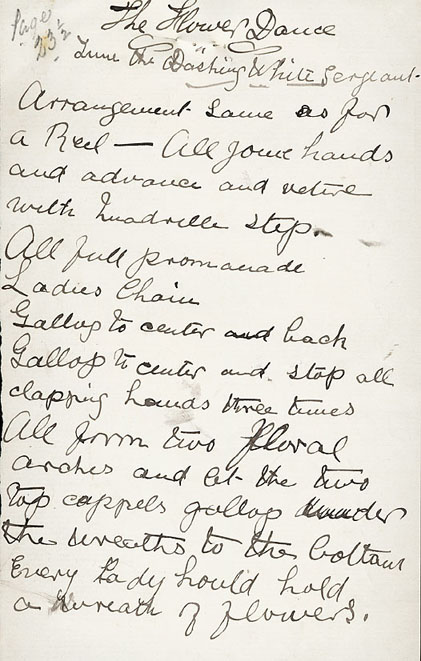 Page
23½
The Flower Dance
Tune The Dashing White Sergeant
Arrangement same as for
a Reel — All joine hands
and advance and retire
with Quadrille step.
All full promanade
Ladies Chain
Gallop to center and back
Gallop to center and stop all
clapping hands three times
All form two floral
arches and let the two
top cappels gallop under
the wreaths to the bottom
Every Lady hould hold
a wreath of flowers.